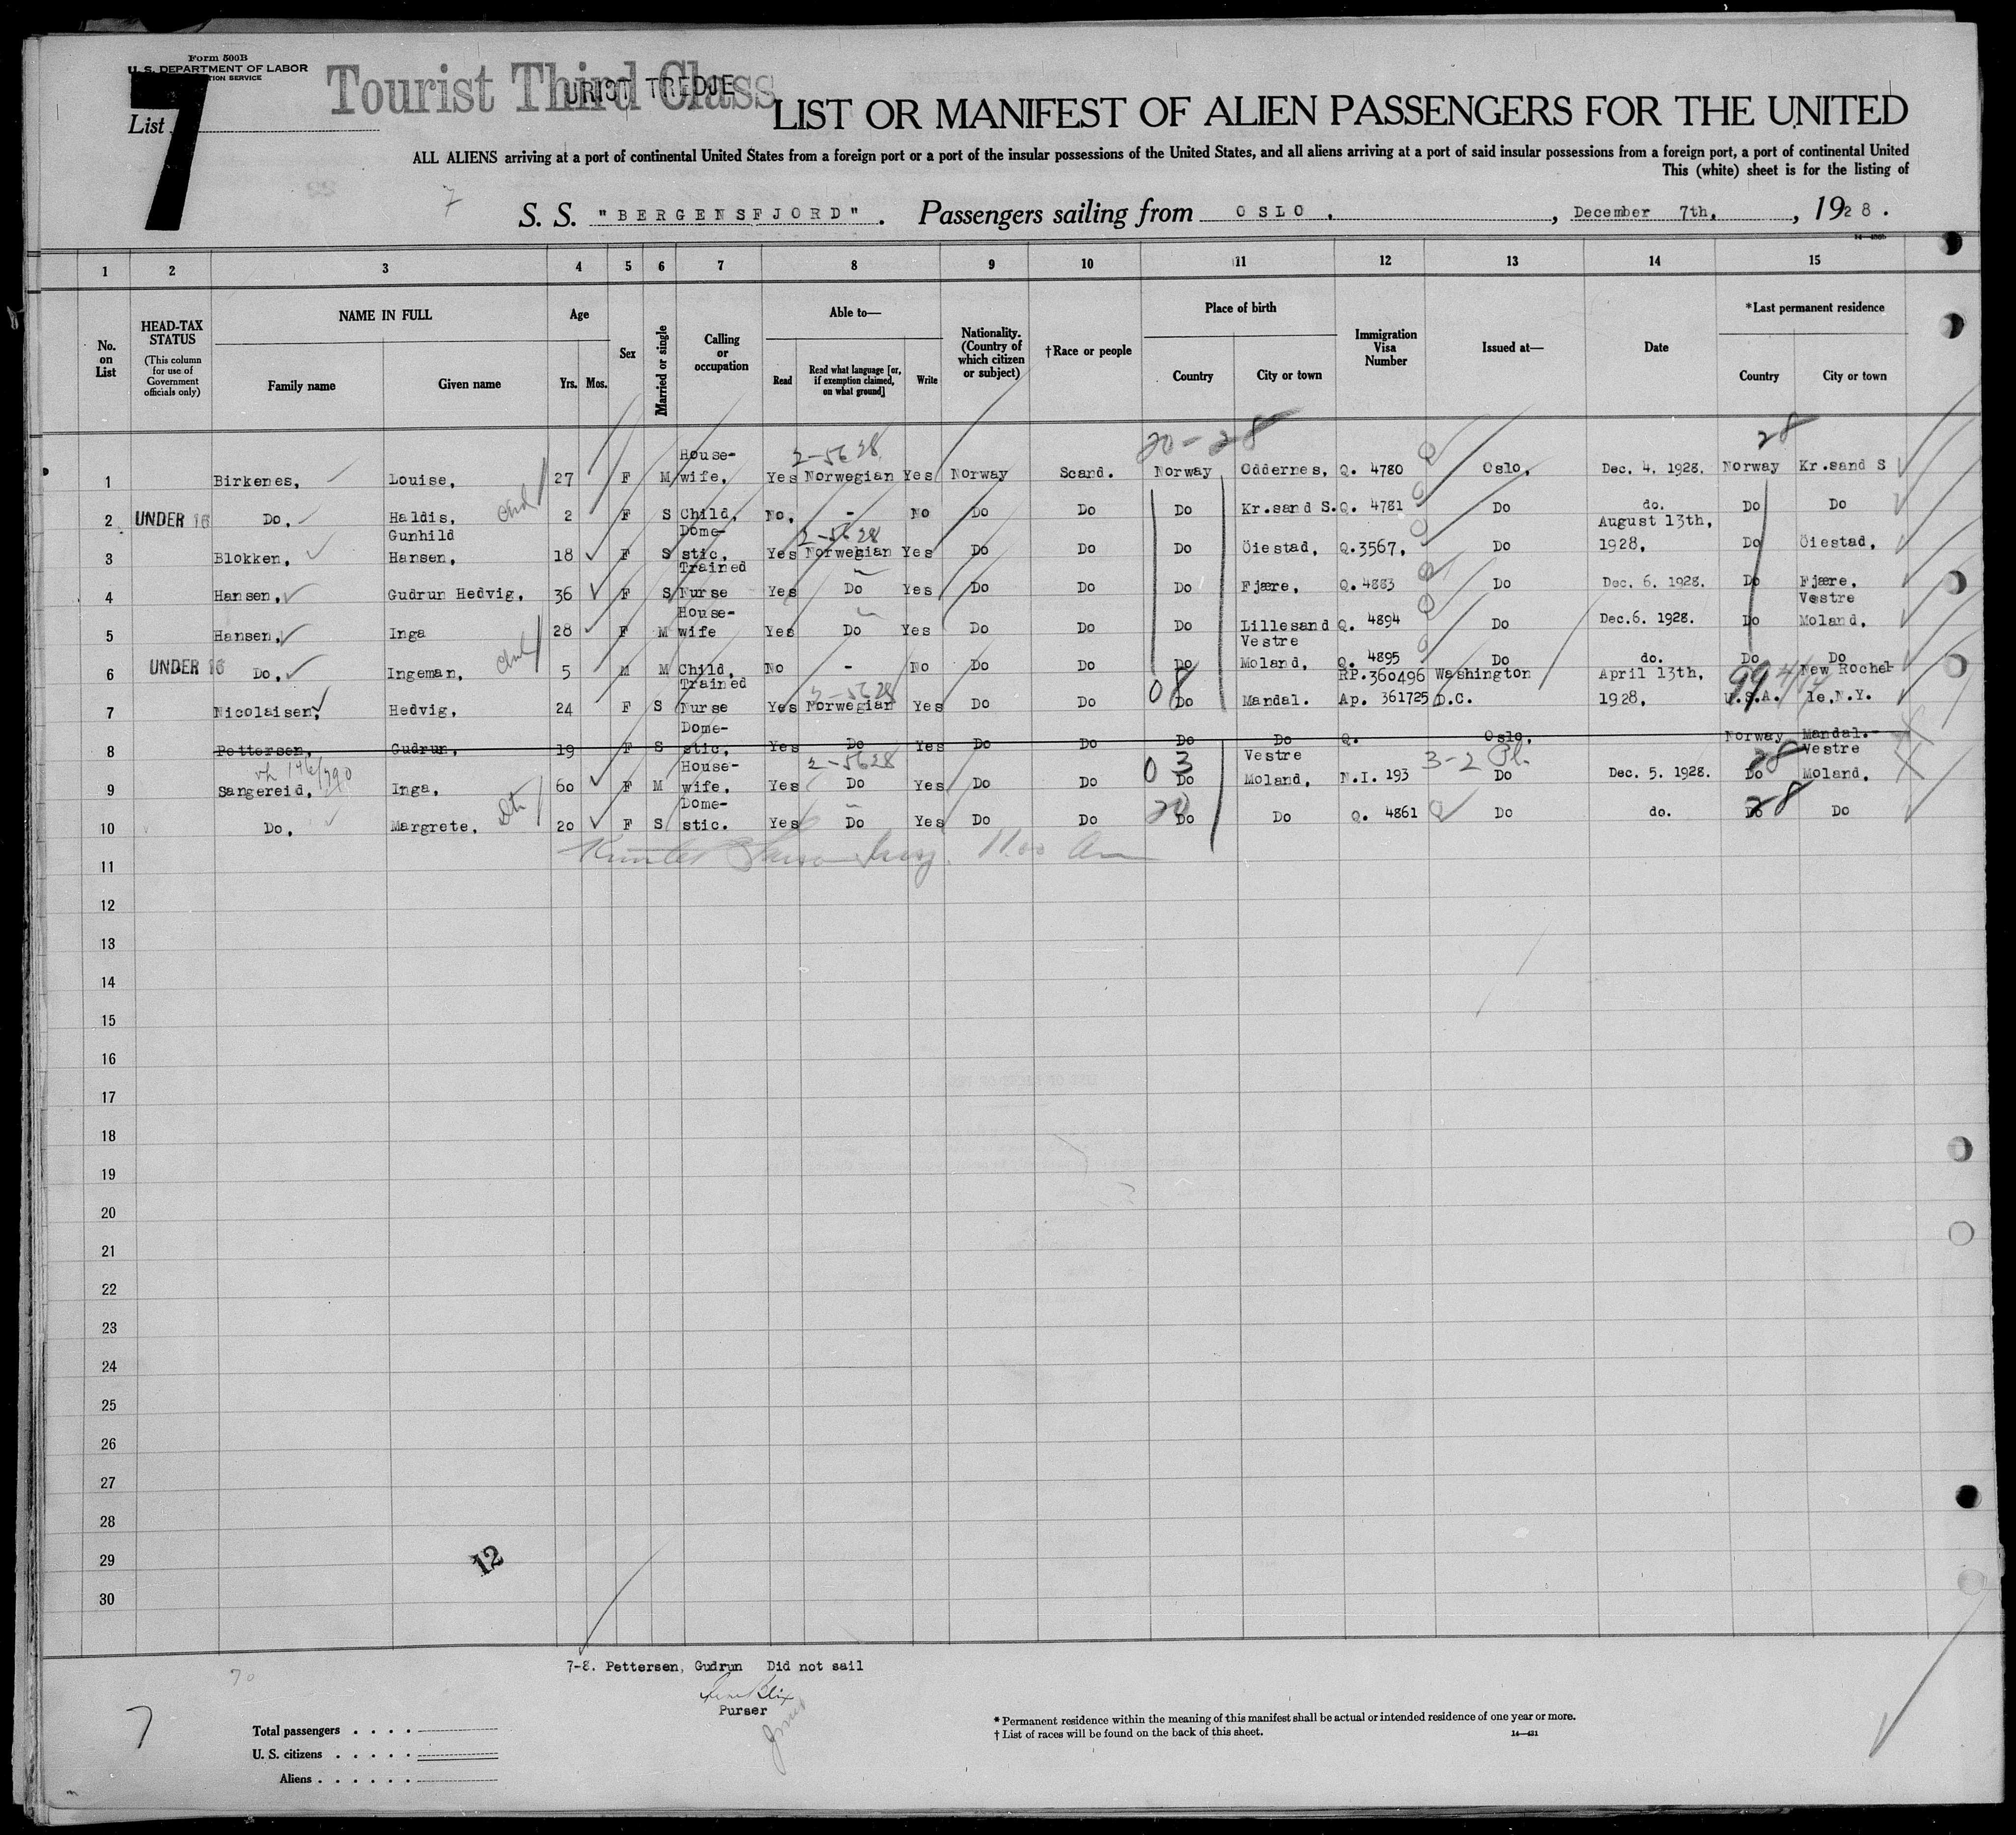 Form 500B
U. S. DEPARTMENT OF LABOR
Tourist Third Class
URIST TREDJE
List 7
LIST OR MANIFEST OF ALIEN PASSENGERS FOR THE UNITED
ALL ALIENS arriving at a port of continental United States from a foreign port or a port of the insular possessions of the United States, and all aliens arriving at a port of said insular possessions from a foreign port, a port of continental United
This (white) sheet is for the listing of
7
S. S. "BERGENSFJORD". Passengers sailing from OSLO. , December 7th. , 1928.
1 2 3 4 5 6 7 8 9 10 11 12 13 14 15
No. on List
HEAD-TAX STATUS
(This column for use of Government officials only)
NAME IN FULL
Family name Given name
Age
Yrs. Mos.
Sex
Married or single
Calling or occupation
Able to—
Read
Read what language [or, if exemption claimed, on what ground]
Write
Nationality. (Country of which citizen or subject)
†Race or people
Place of birth
Country City or town
Immigration Visa Number
Issued at—
Date
*Last permanent residence
Country City or town
20-28 28
2-5628
1 Birkenes, Louise, 27 F M House-wife, Yes Norwegian Yes Norway Scand. Norway Oddernes, Q. 4780 Oslo, Dec. 4. 1928. Norway Kr.sand S
2 UNDER 16 Do. Haldis, 2 F S Child, No. - No Do Do Do Kr.sand S. Q. 4781 Do do. Do Do
2-5628
3 Blokken, Gunhild Hansen, 18 F S Dome-stic, Yes Norwegian Yes Do Do Do Öiestad, Q.3567, Do August 13th, 1928, Do Öiestad,
4 Hansen, Gudrun Hedvig, 36 F S Trained Nurse Yes Do Yes Do Do Do Fjære, Q. 4883 Do Dec. 6. 1928. Do Fjære.
5 Hansen, Inga 28 F M House-wife Yes Do Yes Do Do Do Lillesand Q. 4894 Do Dec.6. 1928. Do Vestre Moland,
6 UNDER 16 Do. Ingeman, 5 M M Child, No - No Do Do Do Vestre Moland, Q. 4895 Do do. Do Do
2-5628 08 99
7 Nicolaisen, Hedvig, 24 F S Trained Nurse Yes Norwegian Yes Do Do Do Mandal. RP.360496 Ap. 361725 Washington D.C. April 13th, 1928, U.S.A. New Rochel-le.N.Y.
8 Pettersen, Gudrun, 19 F S Dome-stic, Yes Do Yes Do Do Do Do Q. Oslo, Norway Mandal.-
2-5628 03 3-2 Pl. 28
9 Sangereid, Inga, 60 F M House-wife, Yes Do Yes Do Do Do Vestre Moland, N.I. 193 Do Dec. 5. 1928. Do Vestre Moland,
20 28
10 Do. Margrete, 20 F S Dome-stic. Yes Do Yes Do Do Do Do Q. 4861 Do do. Do Do
11
12
13
14
15
16
17
18
19
20
21
22
23
24
25
26
27
28
29
30
12
7-8. Pettersen, Gudrun Did not sail
Purser
70
7
Total passengers . . . .
U. S. citizens . . . . .
Aliens . . . . . .
* Permanent residence within the meaning of this manifest shall be actual or intended residence of one year or more.
† List of races will be found on the back of this sheet.
14—431